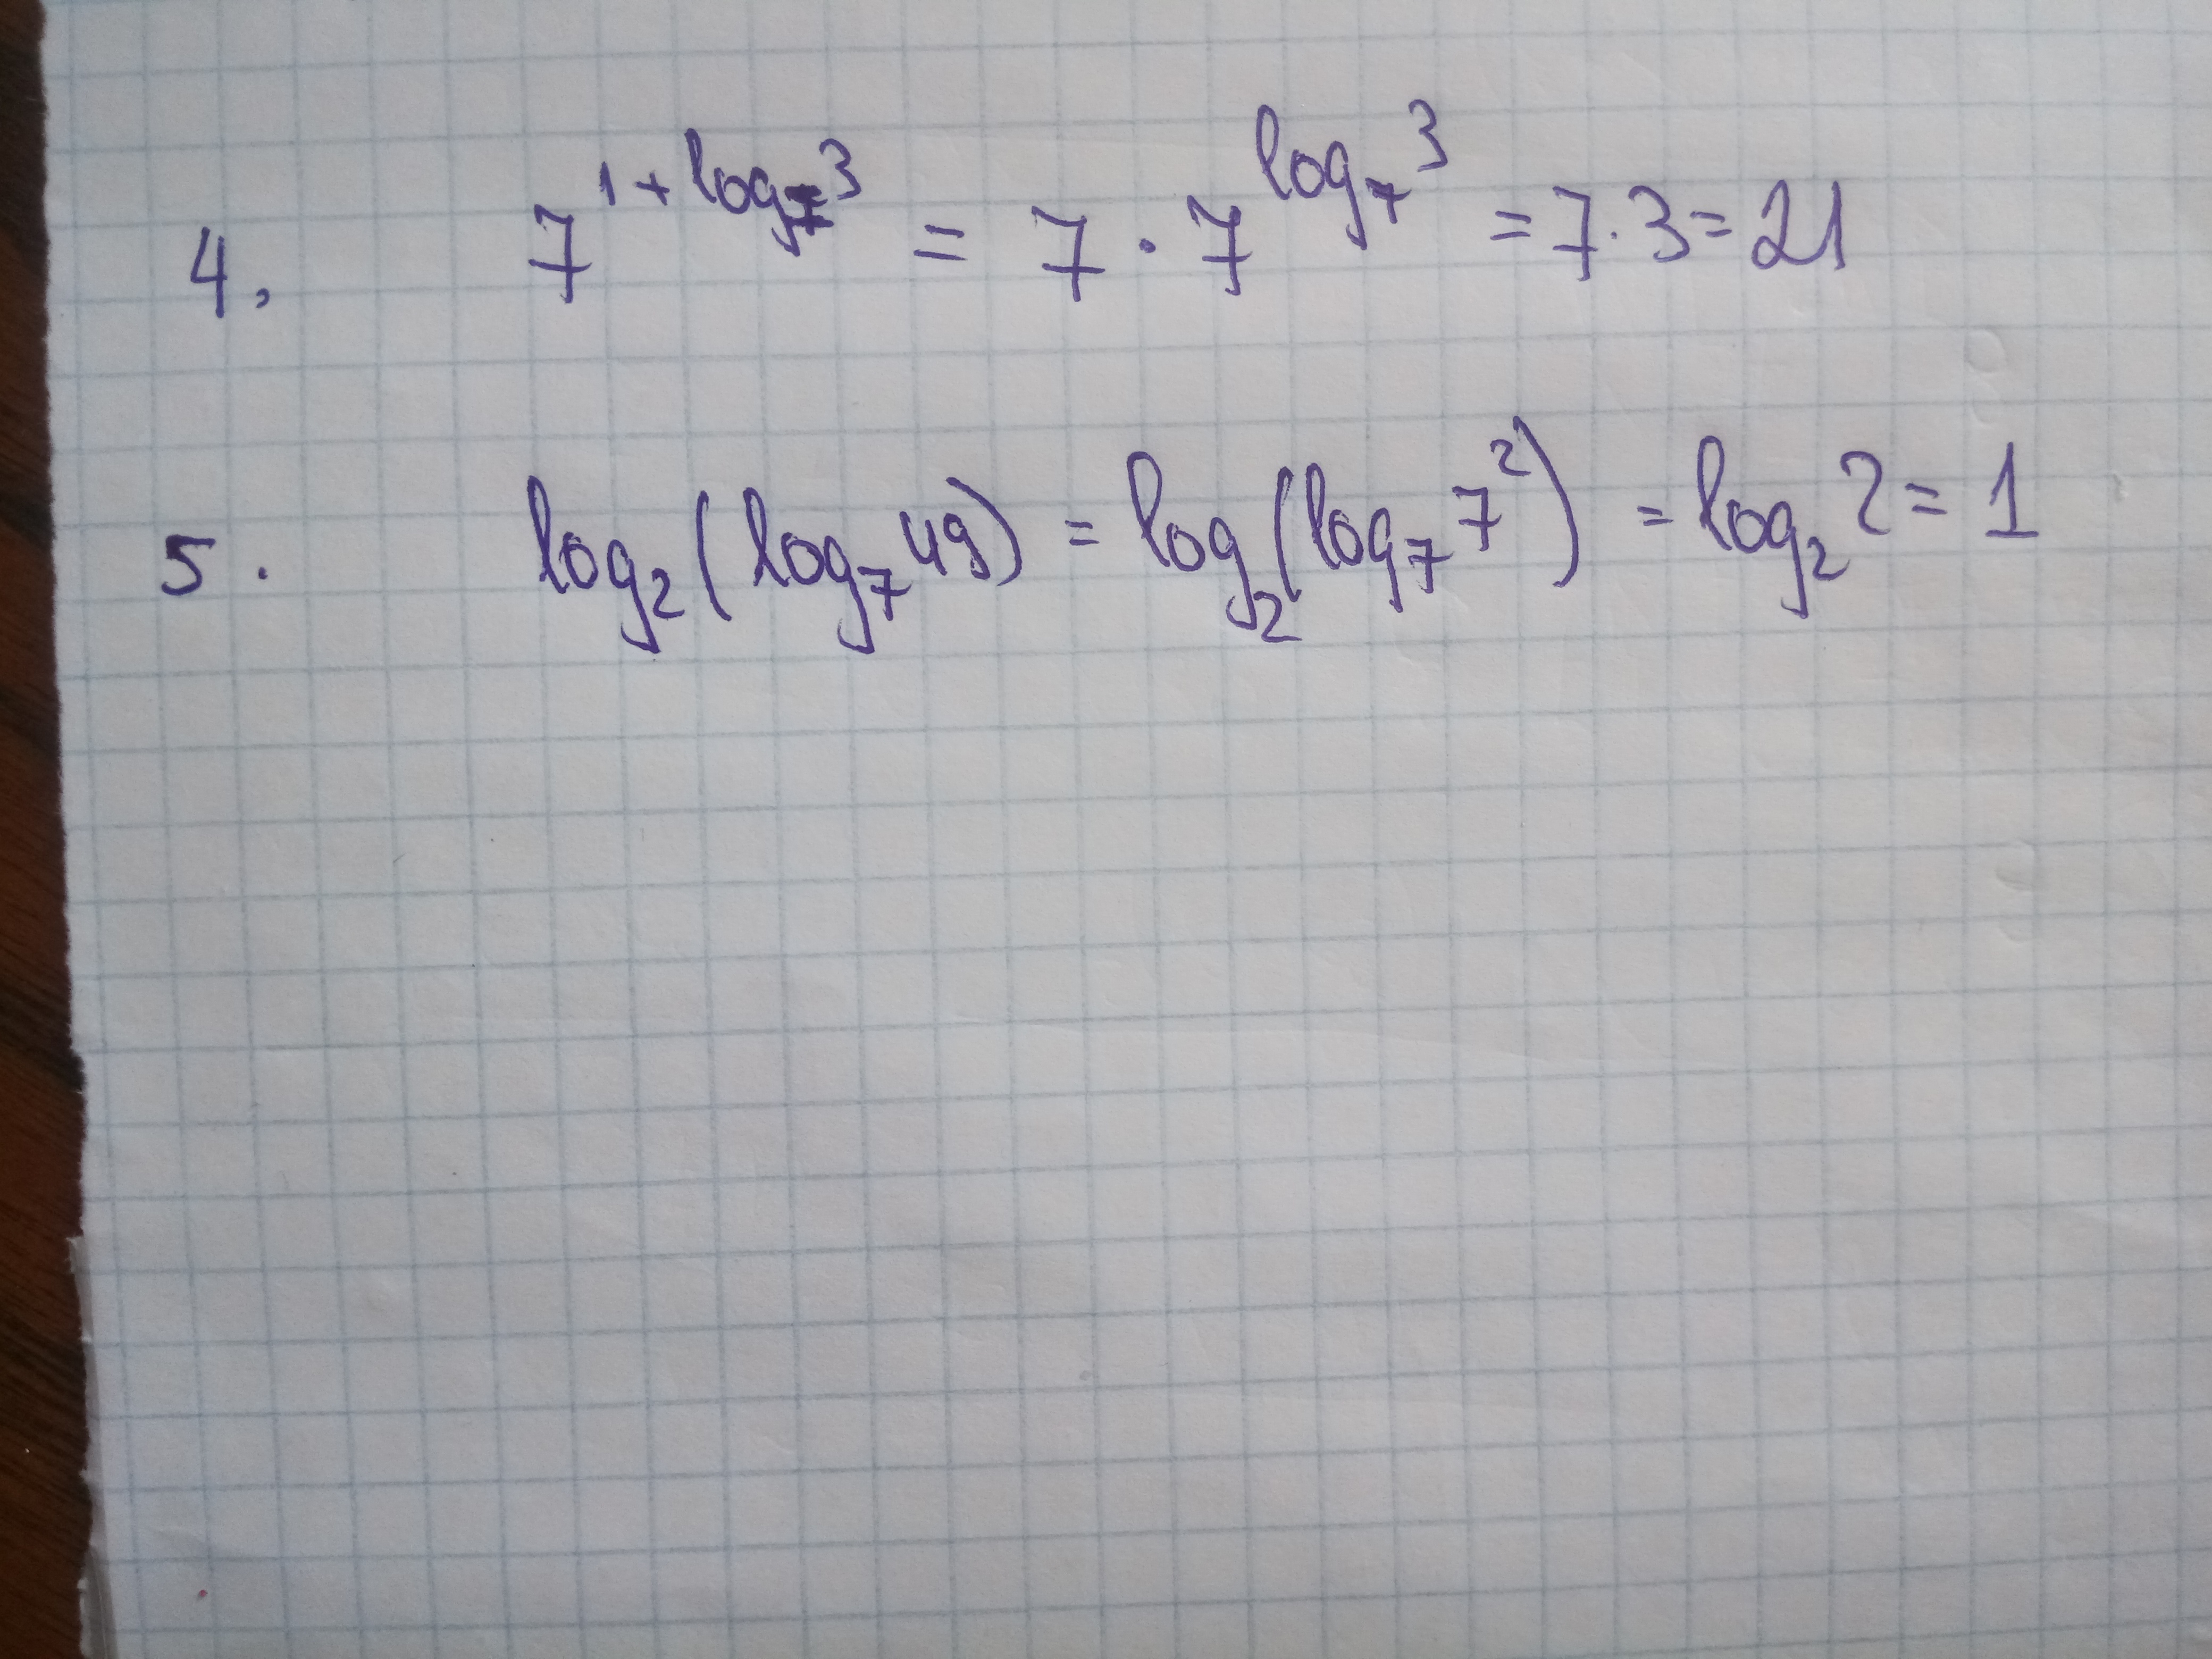 4. 7^{1+log_7 3} = 7 · 7^{log_7 3} = 7 · 3 = 21
5. log_2(log_7 49) = log_2(log_7 7^2) = log_2 2 = 1